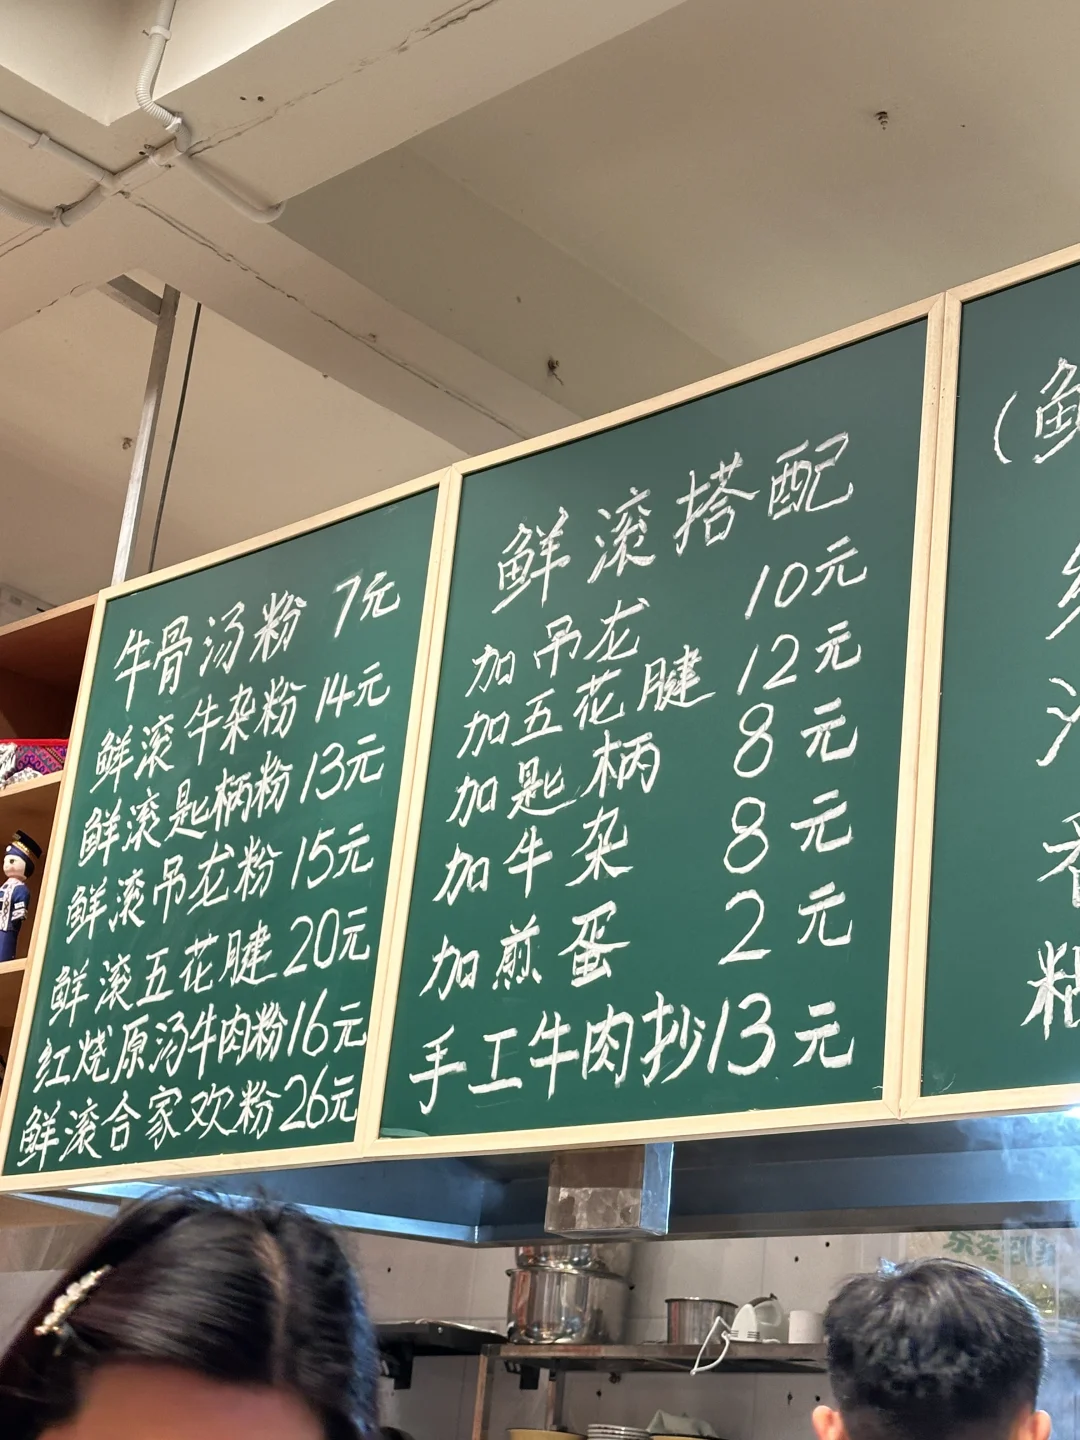 牛骨汤粉 7元
鲜滚牛杂粉 14元
鲜滚匙柄粉 13元
鲜滚吊龙粉 15元
鲜滚五花腱 20元
红烧原汤牛肉粉 16元
鲜滚合家欢粉 26元
鲜滚搭配
加吊龙 10元
加五花腱 12元
加匙柄 8元
加牛杂 8元
加煎蛋 2元
手工牛肉抄 13元
(鱼